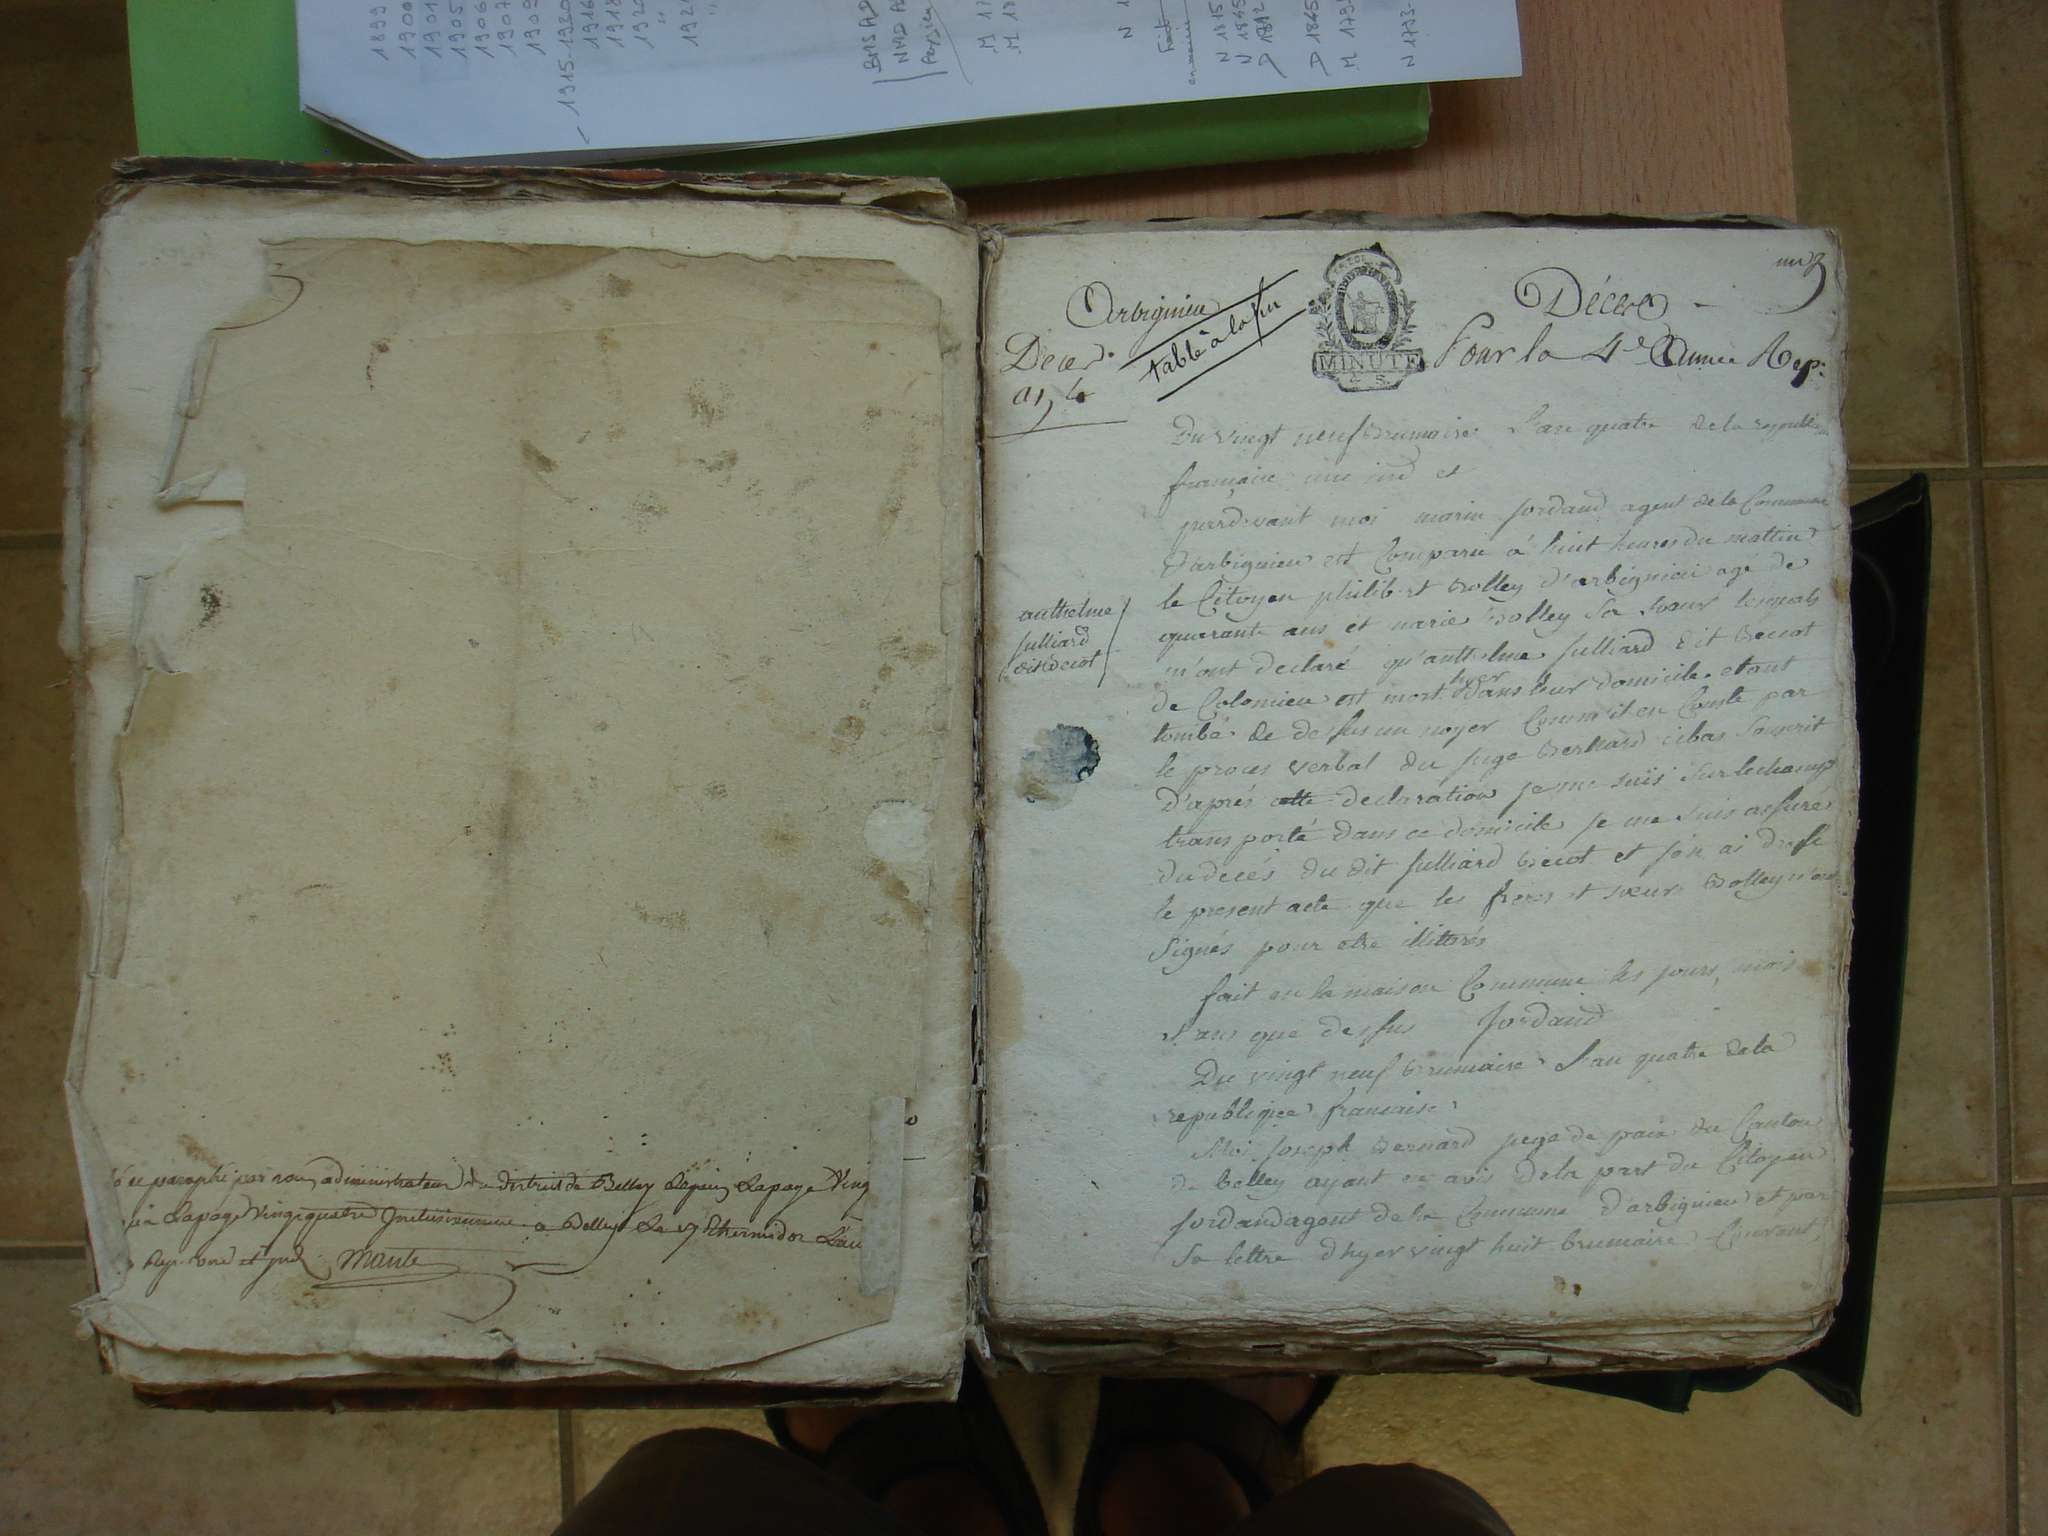 1899
1900
1901
1905
1906
1907
1909
1915-1920
1916
1918
BMS AD
M 17
M 18
N 1815
N 1845
D 1812
D 1845
N 1793-
é et paraphé par nous administrateur du district de Belley
Lapage vingt quatre Inclusivement a Belley Le 17 thermidor L'an
Rep. une et ind. 
Arbignieu
table à la fin
Décès
an 4
MINUTE
Décès
Pour la 4e Année Rep:
Du vingt neuf Brumaire L'an quatre de la republi
francaise une ind et
pardevant moi marin Jordand agent de la Commune
D'arbignieu est Comparu à huit heures du mattin
le Citoyen philibert Bolley d'arbignieu agé de
quarante ans et marie Bolley Sa Soeur lesquels
m'ont declaré qu'anthelme Julliard dit Becot
de Colomieu est mort hyer dans leur domicile etant
tombé de dessus un noyer Comme il en Conste par
le proces verbal du juge Bernard cibas Souscrit
D'aprés cette declaration je me suis sur lechamp
transporté dans ce domicile je me suis assuré
du decés du dit Julliard Becot et j'en ai dressé
le present acte que les freres et soeur Bolley n'ont
Signés pour etre illitterés
fait en la maison Commune les jours, mois
et an que dessus Jordand
anthelme
Julliard
dit Becot
Du vingt neuf Brumaire L'an quatre de la
republique francaise
Moi Joseph Bernard juge de paix du Canton
de Belley ayant eu avis de la part du Citoyen
Jordand agent de la Commune D'arbignieu et par
Sa lettre d'hyer vingt huit brumaire Courant